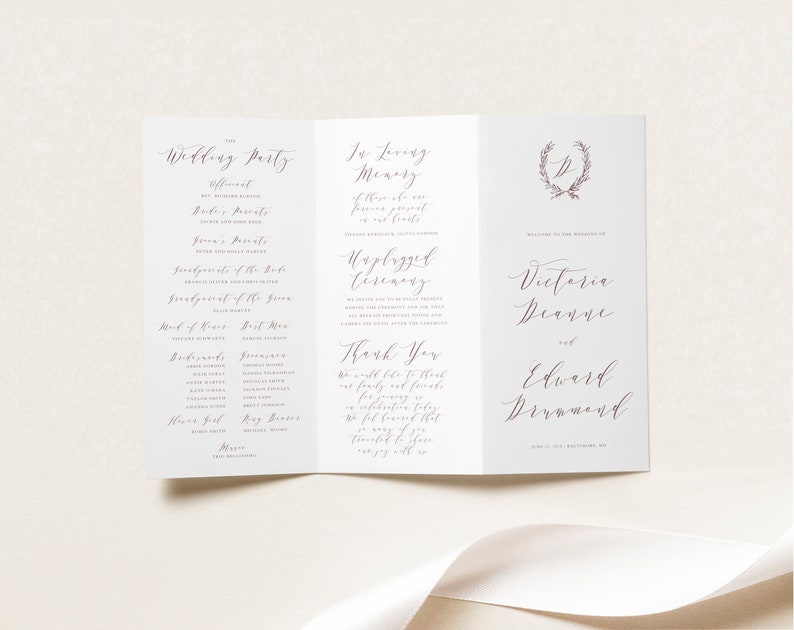 THE
Wedding Party
Officiant
REV. RICHARD BURTON
Bride's Parents
JACKIE AND JOHN REED
Groom's Parents
PETER AND DOLLY HARVEY
Grandparents of the Bride
FRANCIS OLIVER AND CHRIS OLIVER
Grandparent of the Groom
ELLIE HARVEY
Maid of Honor
TIFFANY SCHWARTZ
Best Man
SAMUEL JACKSON
Bridesmaids
ABBIE GORDON
JULIE SURAT
ANNIE HARVEY
KATE O'HARA
TAYLOR SMITH
AMANDA JONES
Groomsmen
THOMAS MOORE
DANIEL PILBASHIAN
DOUGLAS SMITH
JACKSON FINNLEY
JOHN SARO
BRETT JOHNSON
Flower Girl
ROBIN SMITH
Ring Bearer
MICHAEL MOORE
Music
TRIO BELLISSIMO
In Loving
Memory
of those who are
forever present
in our hearts
TIFFANY KEROUACK, OLIVIA GORDON
Unplugged
Ceremony
WE INVITE YOU TO BE FULLY PRESENT
DURING THE CEREMONY AND ASK THAT
ALL REFRAIN FROM CELL PHONE AND
CAMERA USE UNTIL AFTER THE CEREMONY.
Thank You
We would like to thank
our family and friends
for joining us
in celebration today.
We feel honored that
so many of you
traveled to share
our joy with us.
D
WELCOME TO THE WEDDING OF
Victoria
Deanne
and
Edward
Drummond
JUNE 21, 2018 | BALTIMORE, MD